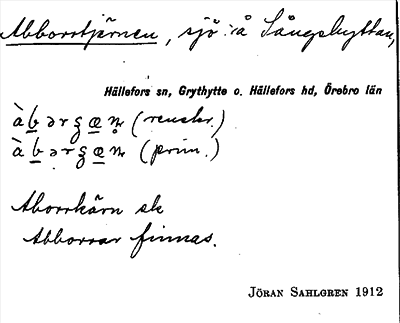 Abborrtjärnen, sjö i å Sångshyttan,
Hällefors sn, Grythytte o. Hällefors hd, Örebro län
(renskr.)
(prim.)
Aborrkärn sk
Abborrar finnas.
JÖRAN SAHLGREN 1912